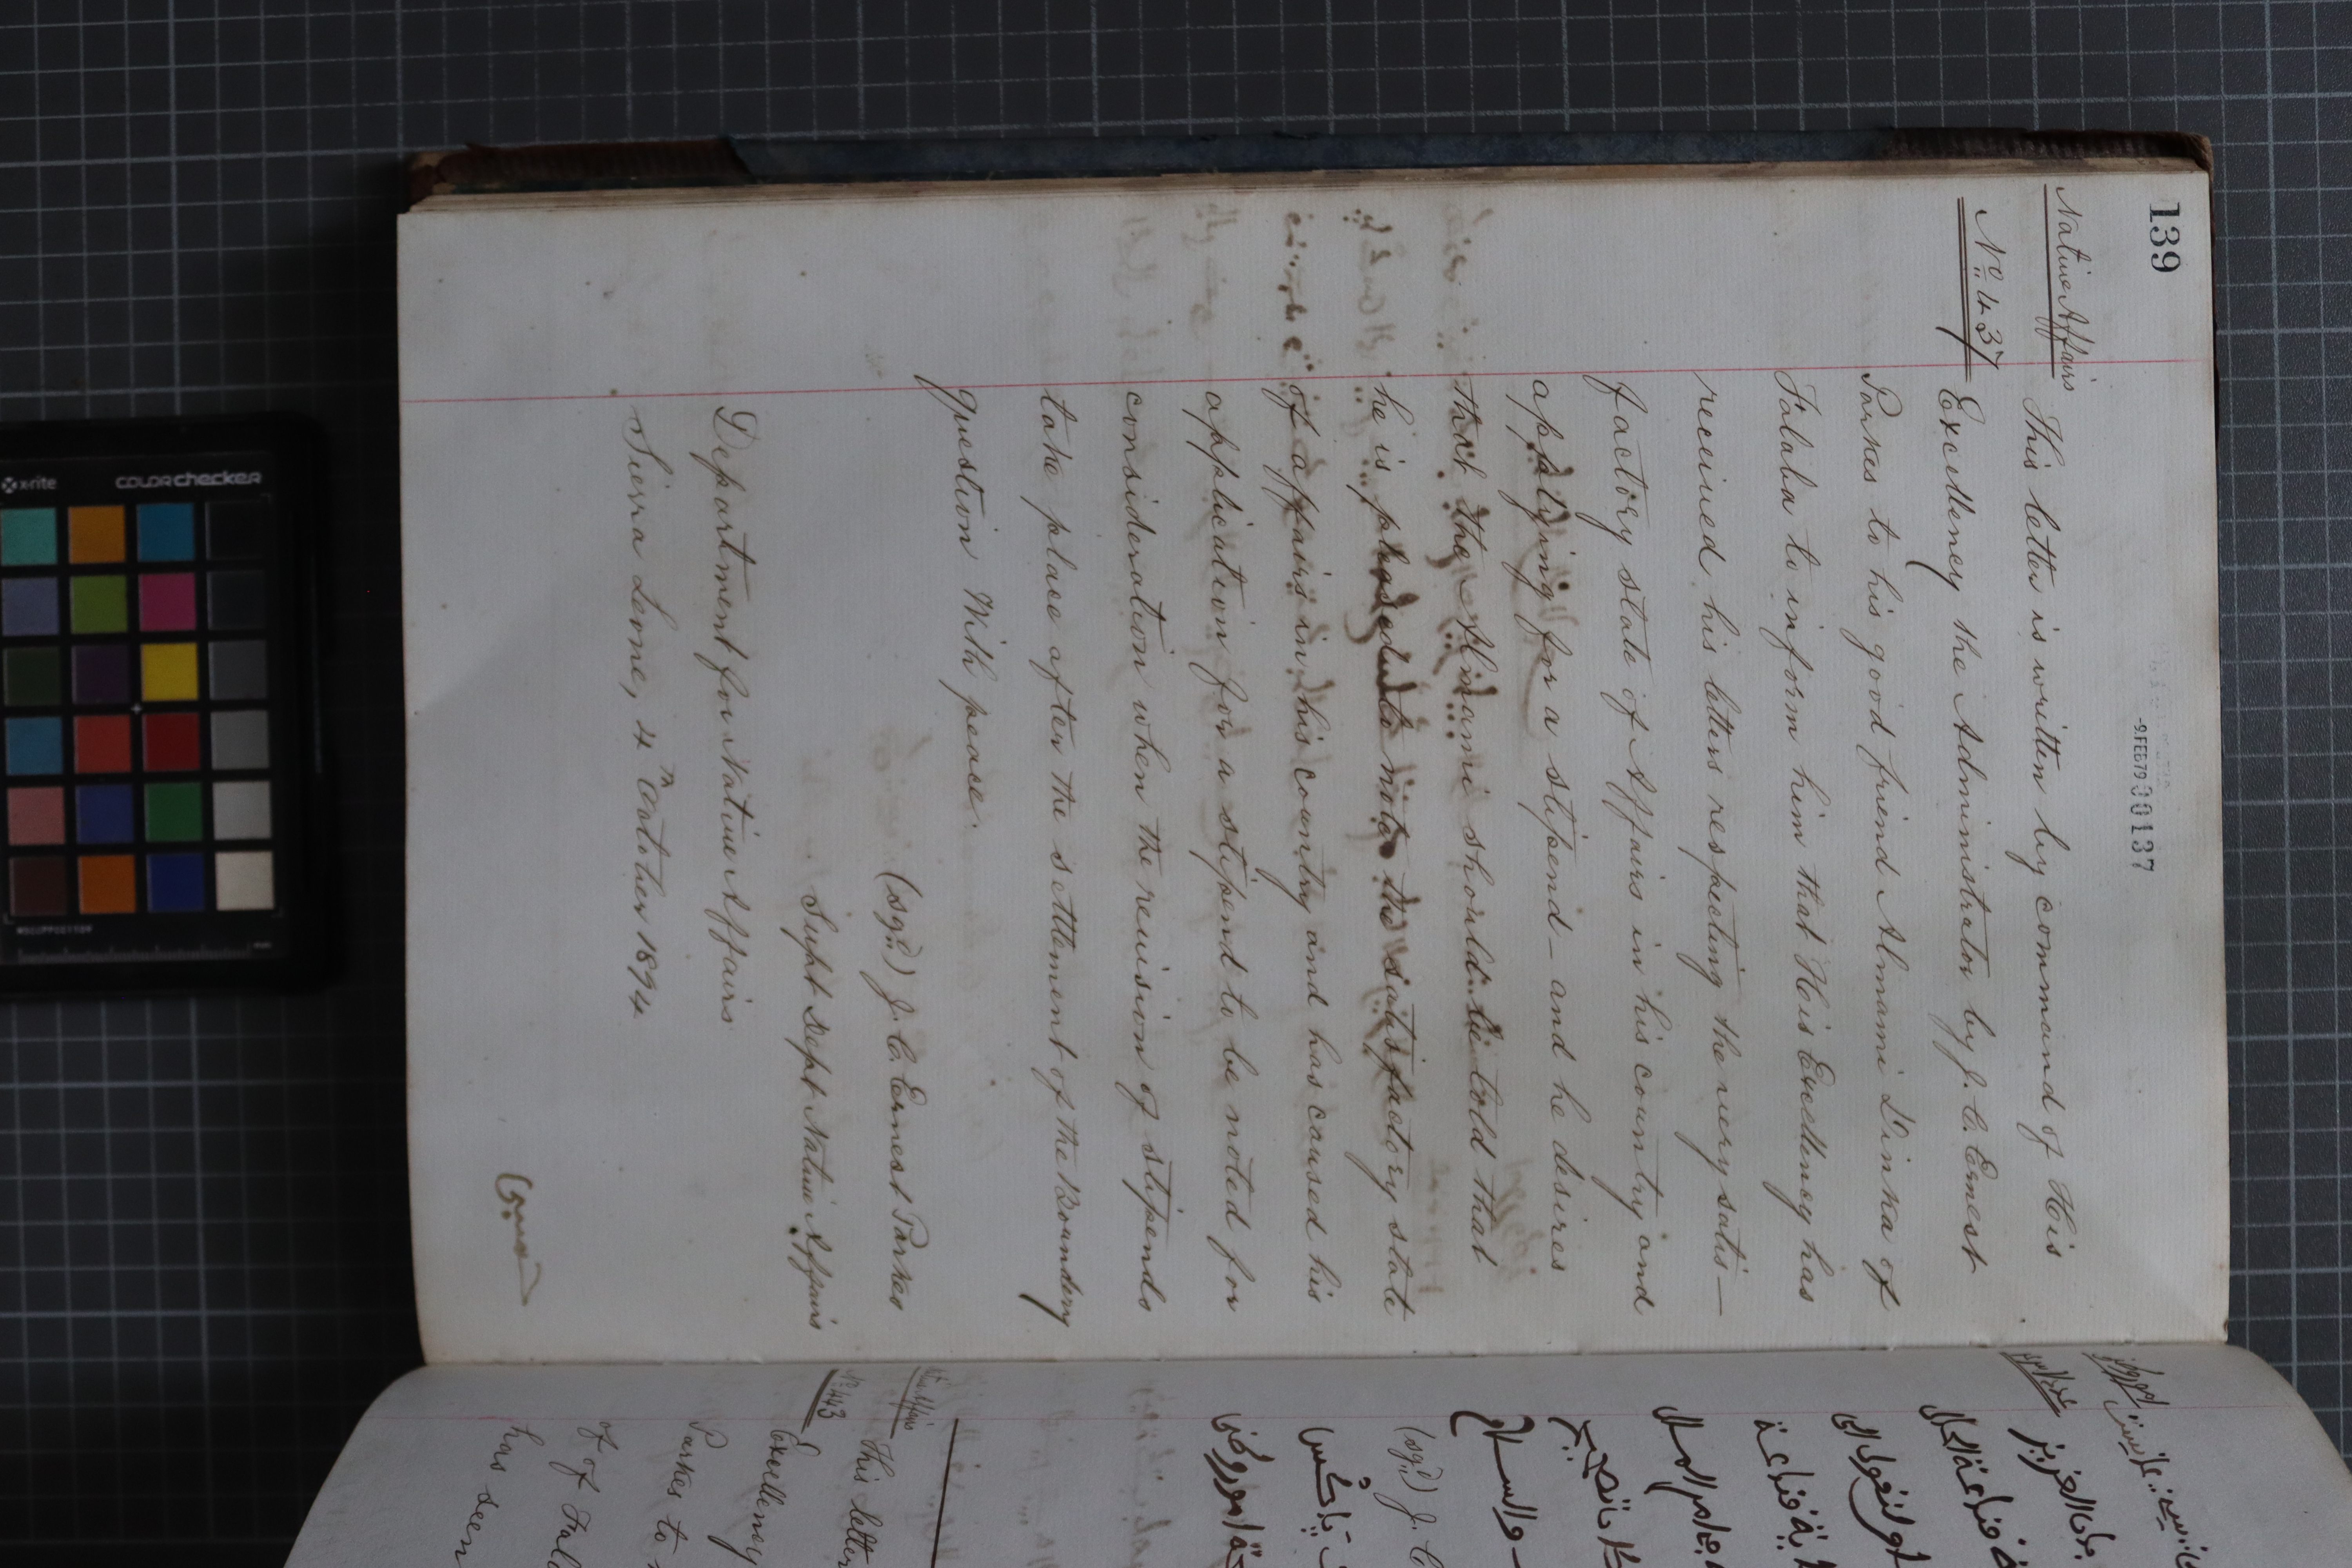 139
-9.FEB79 000137
Native Affairs
No 437
This letter is written by command of His
Excellency the Administrator by J. C. Ernest
Parkes to his good friend Almami Dinka of
Falaba to inform him that His Excellency has
received his letters respecting the very satis-
factory state of Affairs in his country and
applying for a stipend - and he desires
that the Almami should be told that
he is pleased to note the satisfactory state
of affairs in his country and has caused his
application for a stipend to be noted for
consideration when the revision of stipends
take place after the settlement of the Boundery
question With peace.
(sgd) J. C. Ernest Parkes
Supt Dept Native Affairs
Department for Native Affairs
Sierra Leone, 4th October 1894
والسلام
(sgd) J. C
No 443
This letter
Excellency
Parkes to
of of Fala
has seen
x-rite
COLORchecker